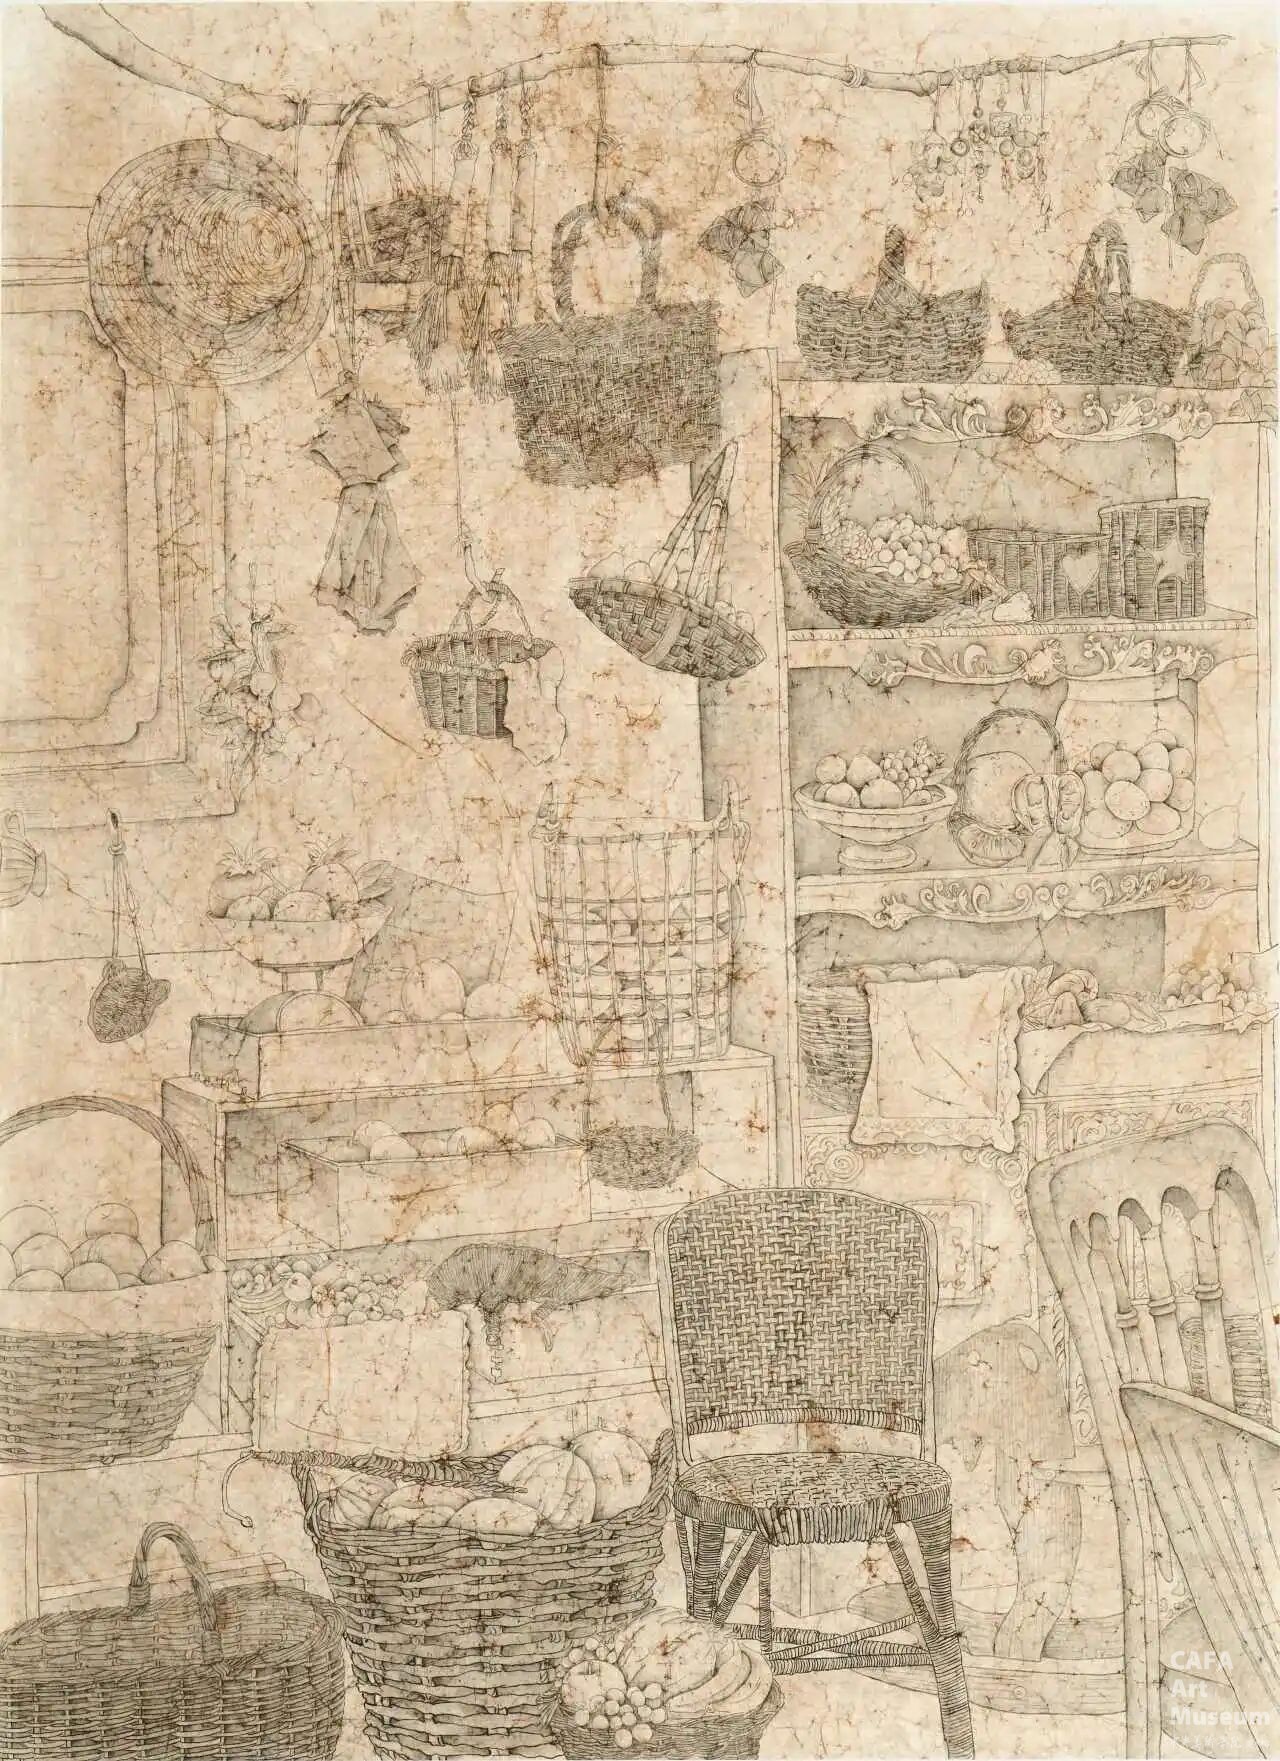 CAFA
Art
Museum